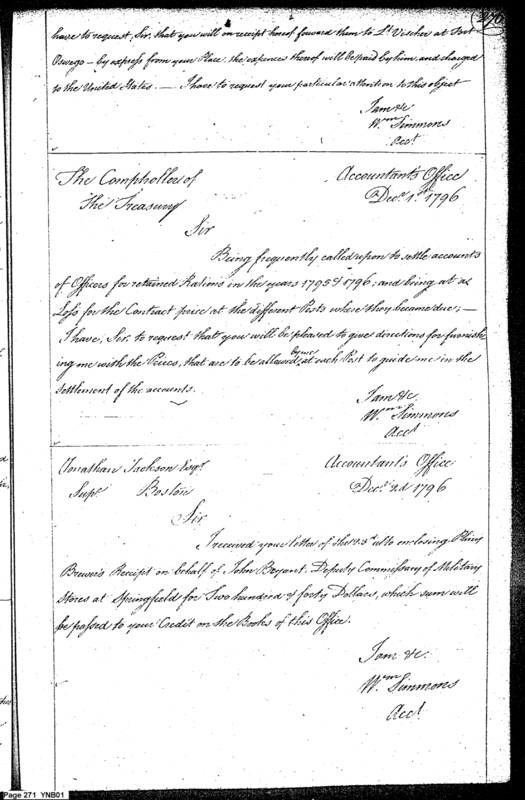 276
have to request, Sir, that you will on receipt hereof foward them to Lt. Vischer at Fort
Oswego - by express from your Place, the expences thereof will be paid by him, and charged
to the United States. — I have to request your particular attention to this object
I am &c
Wm Simmons
Acct
The Comptroller of
the Treasury
Accountant's Office
Decr. 1st 1796
Sir
Being frequently called upon to settle accounts
of Officers for retained Rations in the years 1795 & 1796; and being at a
Loss for the Contract price at the different Posts where they became due; —
I have, Sir, to request that you will be pleased to give directions for furnish
ing me with the Prices, that are to be allowed by me at each Post to guide me in the
settlement of the accounts.
I am &c.
Wm Simmons
Acct
Jonathan Jackson Esqr.
Supr Boston
Accountant's Office
Decr. 2d 1796
Sir
I received your letter of the 23d ulto enclosing Pliny
Brewer's Receipt on behalf of John Bryant, Deputy Commissary of Military
Stores at Springfield for Two hundred & forty Dollars, which sum will
be passed to your Credit on the Books of this Office.
I am &c.
Wm Simmons
Acct
Page 271 YNB01